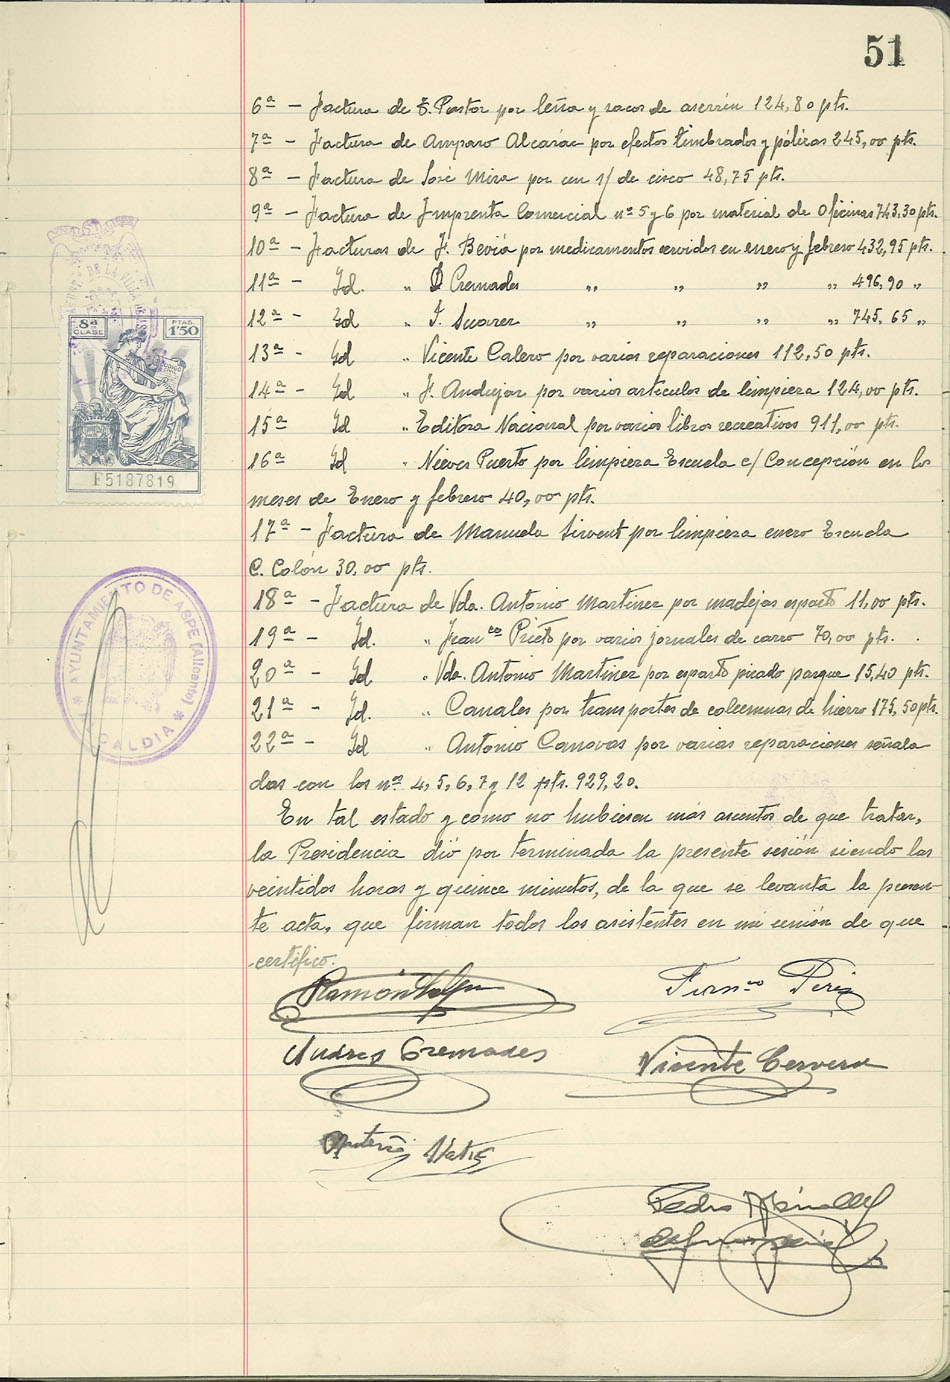 51
6ª - Factura de T. Pastor por leña y sacos de aserrín 124,80 pts.
7ª - Factura de Amparo Alcaráz por efectos timbrados y pólizas 245,00 pts.
8ª - Factura de José Mira por un s/ de cisco 48,75 pts.
9ª - Factura de Imprenta Comercial nº 5 y 6 por material de Oficinas 743,30 pts.
10ª - Facturas de F. Beviá por medicamentos servidos en enero y febrero 432,95 pts.
11ª - Id. " Cremades " " " " 496,90 "
12ª - Id " J. Suarez " " " " 745,65 "
13ª - Id " Vicente Calero por varias reparaciones 112,50 pts.
14ª - Id " F. Andujar por varios artículos de limpieza 124,00 pts.
15ª Id " Editora Nacional por varios libros recreativos 911,00 pts.
16ª Id " Nieves Puerto por limpieza Escuela c/ Concepción en los
meses de Enero y febrero 40,00 pts.
17ª - Factura de Manuela Sirvent por limpieza enero Escuela
C. Colón 30,00 pts.
18ª - Factura de Vda. Antonio Martinez por madejas esparto 11,00 pts.
19ª - Id. " Franco Prieto por varios jornales de carro 70,00 pts.
20ª - Id " Vda. Antonio Martinez por esparto picado parque 15,40 pts.
21ª - Id. " Canales por transportes de columnas de hierro 175,50 pts.
22ª - Id " Antonio Canovas por varias reparaciones señala
das con los nºs 4, 5, 6, 7 y 12 pts. 929,20.
En tal estado y como no hubiesen más asuntos de que tratar,
la Presidencia dió por terminada la presente sesión siendo las
veintidos horas y quince minutos, de la que se levanta la presen-
te acta, que firman todos los asistentes en mi unión de que
certifico.
8ª CLASE
PTAS. 1'50
F5187819
AYUNTAMIENTO DE ASPE (Alicante)
ALCALDIA
Ramón
Andres Cremades
Vicente Cervera
Antonio
Pedro